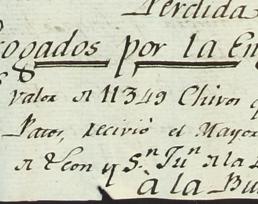 Perdida
ogados por la En
Valor de 11349 Chivos
Patos, recivio el Mayor
de Leon y Sn Jun de la
a la Bu